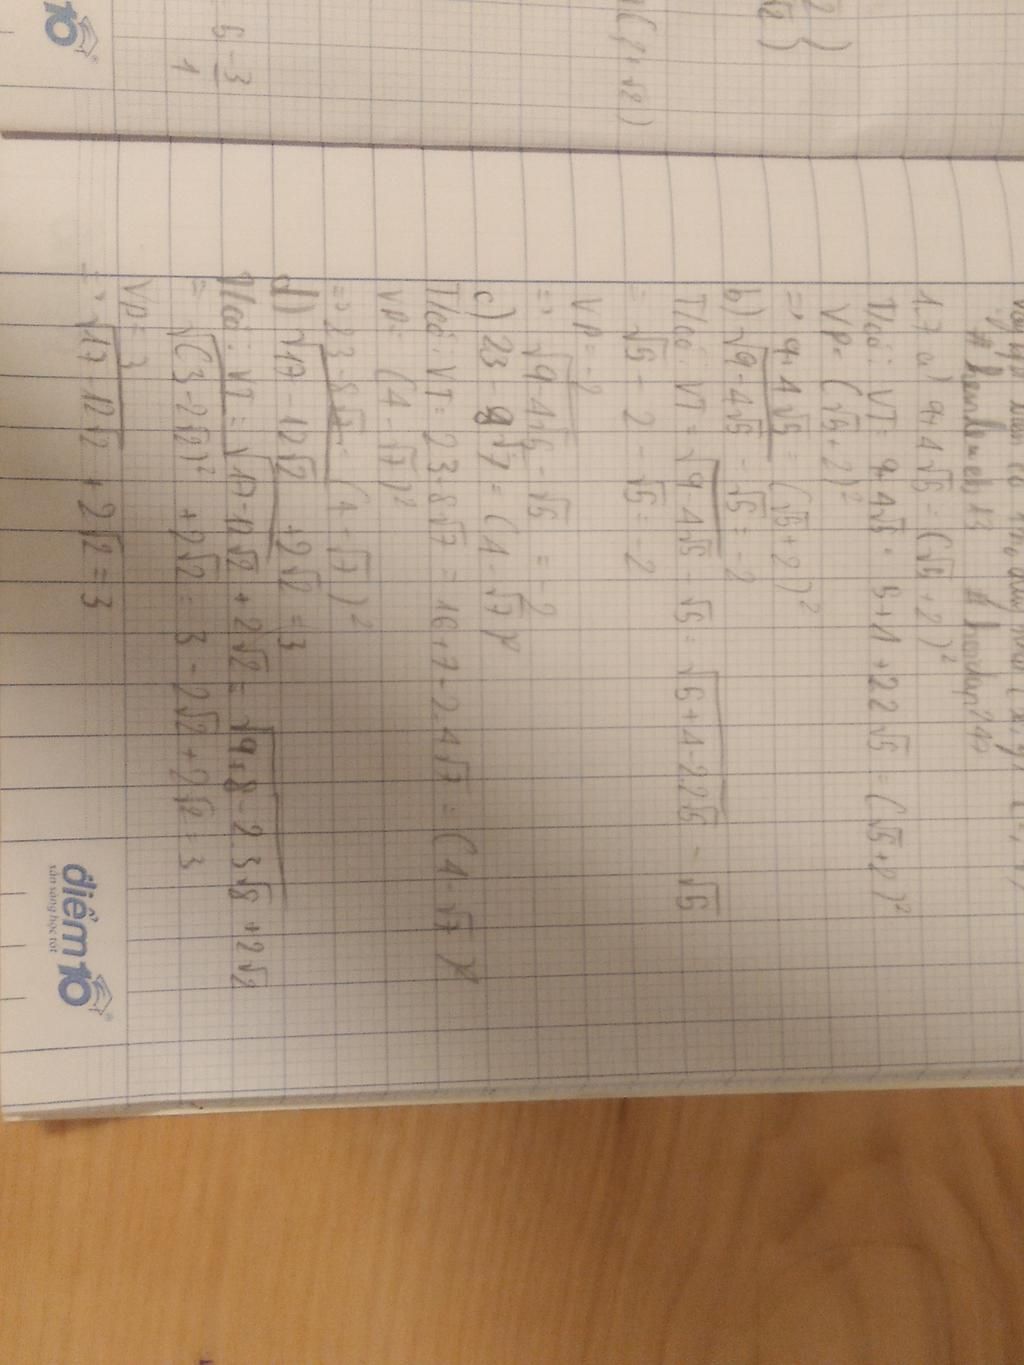 5 - 3
1
điểm10
1.7 a) 9 + 4√5 = (√5 + 2)²
T/có: VT = 9 + 4√5 = 5 + 4 + 2.2√5 = (√5 + 2)²
VP = (√5 + 2)²
=> 9 + 4√5 = (√5 + 2)²
b) √9 - 4√5 - √5 = -2
T/có: VT = √9 - 4√5 - √5 = √5 + 4 - 2.2√5 - √5
= √5 - 2 - √5 = -2
VP = -2
=> √9 - 4√5 - √5 = -2
c) 23 - 8√7 = (4 - √7)²
T/có: VT = 23 - 8√7 = 16 + 7 - 2.4√7 = (4 - √7)²
VP = (4 - √7)²
=> 23 - 8√7 = (4 - √7)²
d) √17 - 12√2 + 2√2 = 3
T/có: VT = √17 - 12√2 + 2√2 = √9 + 8 - 2.3√8 + 2√2
= √(3 - 2√2)² + 2√2 = 3 - 2√2 + 2√2 = 3
VP = 3
√17 - 12√2 + 2√2 = 3
điểm10
sẵn sàng học tốt